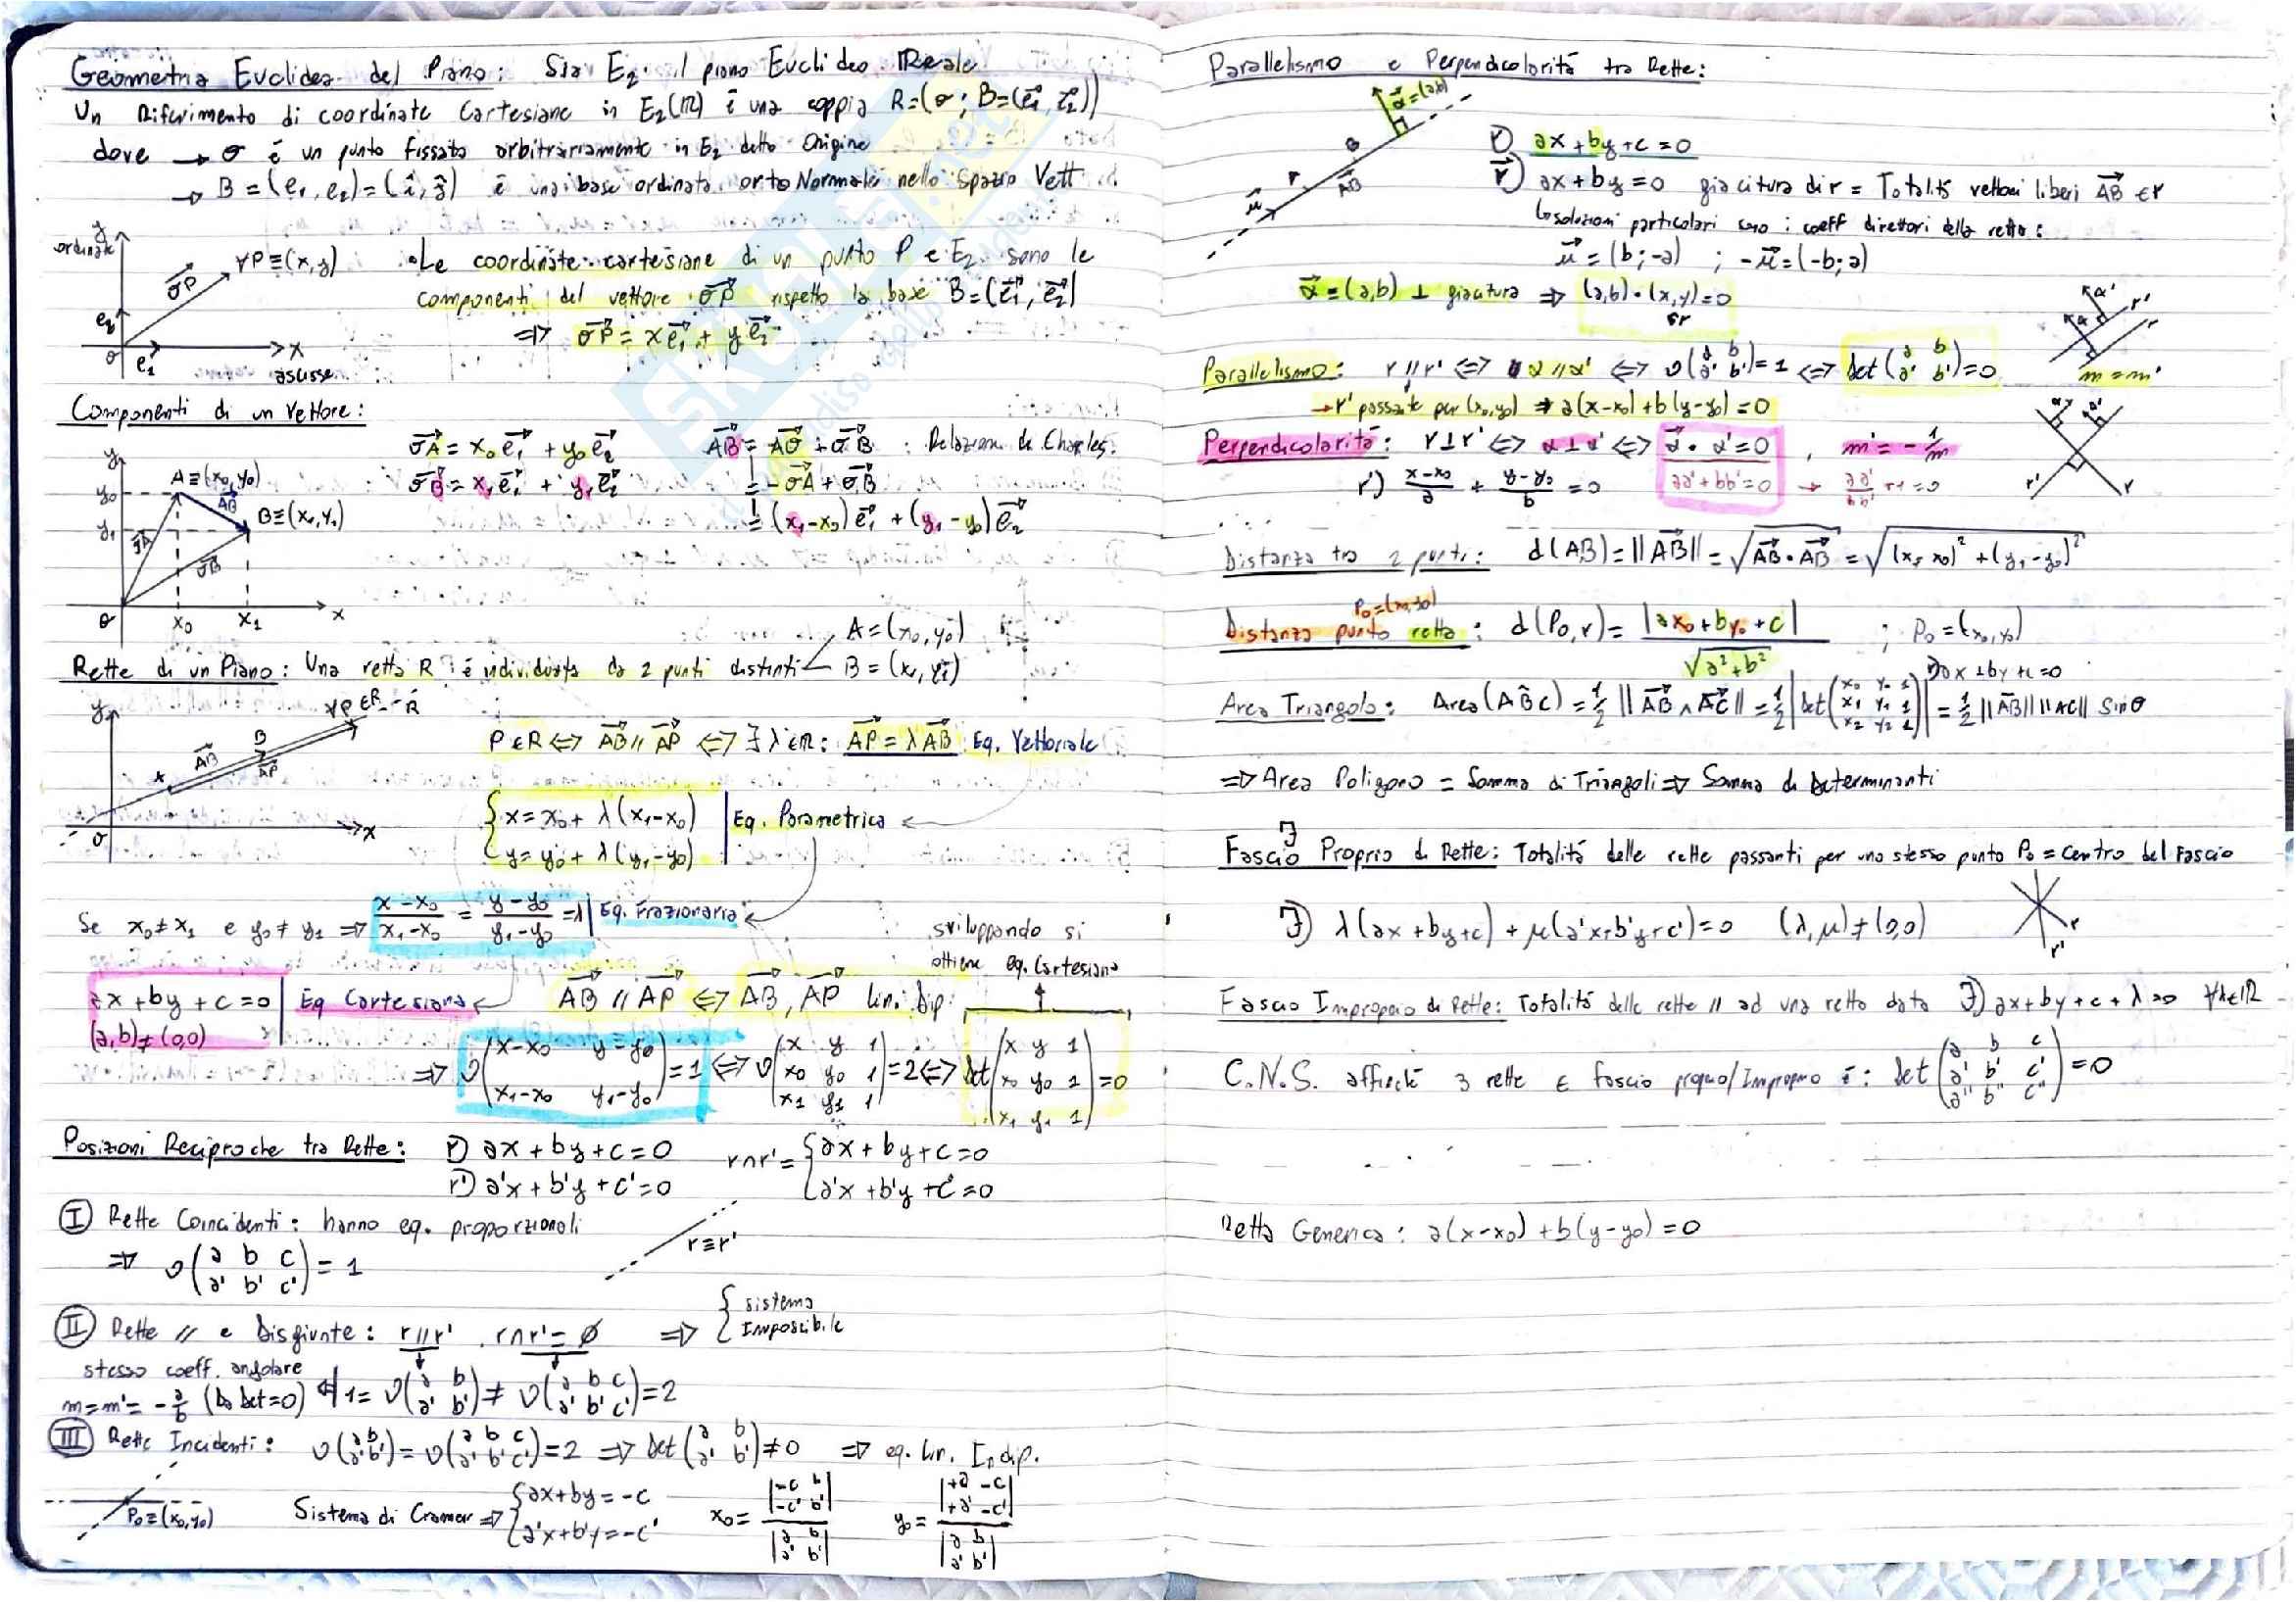 Geometria Euclidea del Piano: Sia E₂ il piano Euclideo Reale
Un Riferimento di coordinate Cartesiane in E₂(ℝ) è una coppia R=(σ; B=(e₁, e₂))
dove → σ è un punto fissato arbitrariamente in E₂ detto Origine
→ B = (e₁, e₂) = (î, ĵ) è una base ordinata ortoNormale nello Spazio Vett.
y
ordinate
∀P≡(x,y)
σP
e₂
σ
e₁
x
ascisse
• Le coordinate cartesiane di un punto P ∈ E₂ sono le
componenti del vettore σP rispetto la base B=(e₁, e₂)
⇒ σP = x e₁ + y e₂
Componenti di un Vettore:
σA = x₀e₁ + y₀e₂
σB = x₁e₁ + y₁e₂
AB = Aσ + σB : Relazione di Charles.
= -σA + σB
= (x₁-x₀)e₁ + (y₁-y₀)e₂
y
y₀
A≡(x₀,y₀)
AB
B≡(x₁,y₁)
y₁
σA
σB
σ
x₀
x₁
x
Rette di un Piano: Una retta R è individuata da 2 punti distinti
A=(x₀,y₀)
B=(x₁,y₁)
y
∀P∈R
R
B
AB
AP
A
σ
x
P∈R ⇔ AB // AP ⇔ ∃λ∈ℝ: AP = λAB Eq. Vettoriale
{x = x₀ + λ(x₁-x₀)
{y = y₀ + λ(y₁-y₀)
Eq. Parametrica
Se x₀≠x₁ e y₀≠y₁ ⇒ (x-x₀)/(x₁-x₀) = (y-y₀)/(y₁-y₀) = λ | Eq. Frazionaria
sviluppando si
ottiene eq. Cartesiana
ax + by + c = 0 | Eq Cartesiana
(a,b)≠(0,0)
AB // AP ⇔ AB, AP lin. Dip.
⇒ ϑ(x-x₀ y-y₀ / x₁-x₀ y₁-y₀) = 1 ⇔ ϑ(x y 1 / x₀ y₀ 1 / x₁ y₁ 1) = 2 ⇔ Det(x y 1 / x₀ y₀ 1 / x₁ y₁ 1) = 0
Posizioni Reciproche tra Rette: r) ax + by + c = 0
r') a'x + b'y + c' = 0
r∩r' = {ax + by + c = 0
{a'x + b'y + c' = 0
Ⓘ Rette Coincidenti: hanno eq. proporzionali
⇒ ϑ(a b c / a' b' c') = 1
r≡r'
Ⓘ Ⓘ Rette // e Disgiunte: r//r' , r∩r' = ∅ ⇒ { sistema
Impossibile
stesso coeff. angolare
m=m'= -a/b (Da Det=0) ⇐ 1 = ϑ(a b / a' b') ≠ ϑ(a b c / a' b' c') = 2
III Rette Incidenti: ϑ(a b / a' b') = ϑ(a b c / a' b' c') = 2 ⇒ Det(a b / a' b') ≠ 0 ⇒ eq. Lin. Indip.
P₀≡(x₀,y₀)
Sistema di Cramer ⇒ {ax+by=-c
{a'x+b'y=-c'
x₀ = |-c b / -c' b'| / |a b / a' b'|
y₀ = |+a -c / +a' -c'| / |a b / a' b'|
Parallelismo e Perpendicolarità tra Rette:
α=(a,b)
B
AB
μ
r) ax + by + c = 0
r) ax + by = 0 giacitura di r = Totalità vettori liberi AB ∈ r
↳ soluzioni particolari sono i coeff direttori della retta:
μ = (b;-a) ; -μ = (-b;a)
α = (a,b) ⊥ giacitura ⇒ (a,b)·(x,y) = 0
α'
r'
α
r
Parallelismo: r//r' ⇔ α//α' ⇔ ϑ(a b / a' b') = 1 ⇔ Det(a b / a' b') = 0
m = m'
→ r' passante per (x₀,y₀) ⇒ a(x-x₀) + b(y-y₀) = 0
Perpendicolarità: r⊥r' ⇔ α⊥α' ⇔ α · α' = 0 , m' = -1/m
r') (x-x₀)/a + (y-y₀)/b = 0
aa' + bb' = 0 → aa'/bb' + 1 = 0
r'
r
Distanza tra 2 punti: d(AB) = ||AB|| = √(AB·AB) = √((x₁-x₀)² + (y₁-y₀)²)
P₀=(x₀,y₀)
Distanza punto retta: d(P₀,r) = |ax₀ + by₀ + c| / √(a²+b²) ; P₀=(x₀,y₀)
r) ax + by + c = 0
Area Triangolo: Area(ABC) = ½ ||AB ∧ AC|| = ½ |Det(x₀ y₀ 1 / x₁ y₁ 1 / x₂ y₂ 1)| = ½ ||AB|| ||AC|| Sinθ
⇒ Area Poligono = Somma di Triangoli ⇒ Somma di Determinanti
F
Fascio Proprio di Rette: Totalità delle rette passanti per uno stesso punto P₀ = Centro del Fascio
F) λ(ax + by + c) + μ(a'x + b'y + c') = 0 (λ,μ) ≠ (0,0)
r
r'
Fascio Improprio di Rette: Totalità delle rette // ad una retta data F) ax + by + c + λ = 0 ∀λ∈ℝ
C.N.S. affinché 3 rette ∈ fascio proprio/Improprio è: Det(a b c / a' b' c' / a'' b'' c'') = 0
Retta Generica: a(x-x₀) + b(y-y₀) = 0